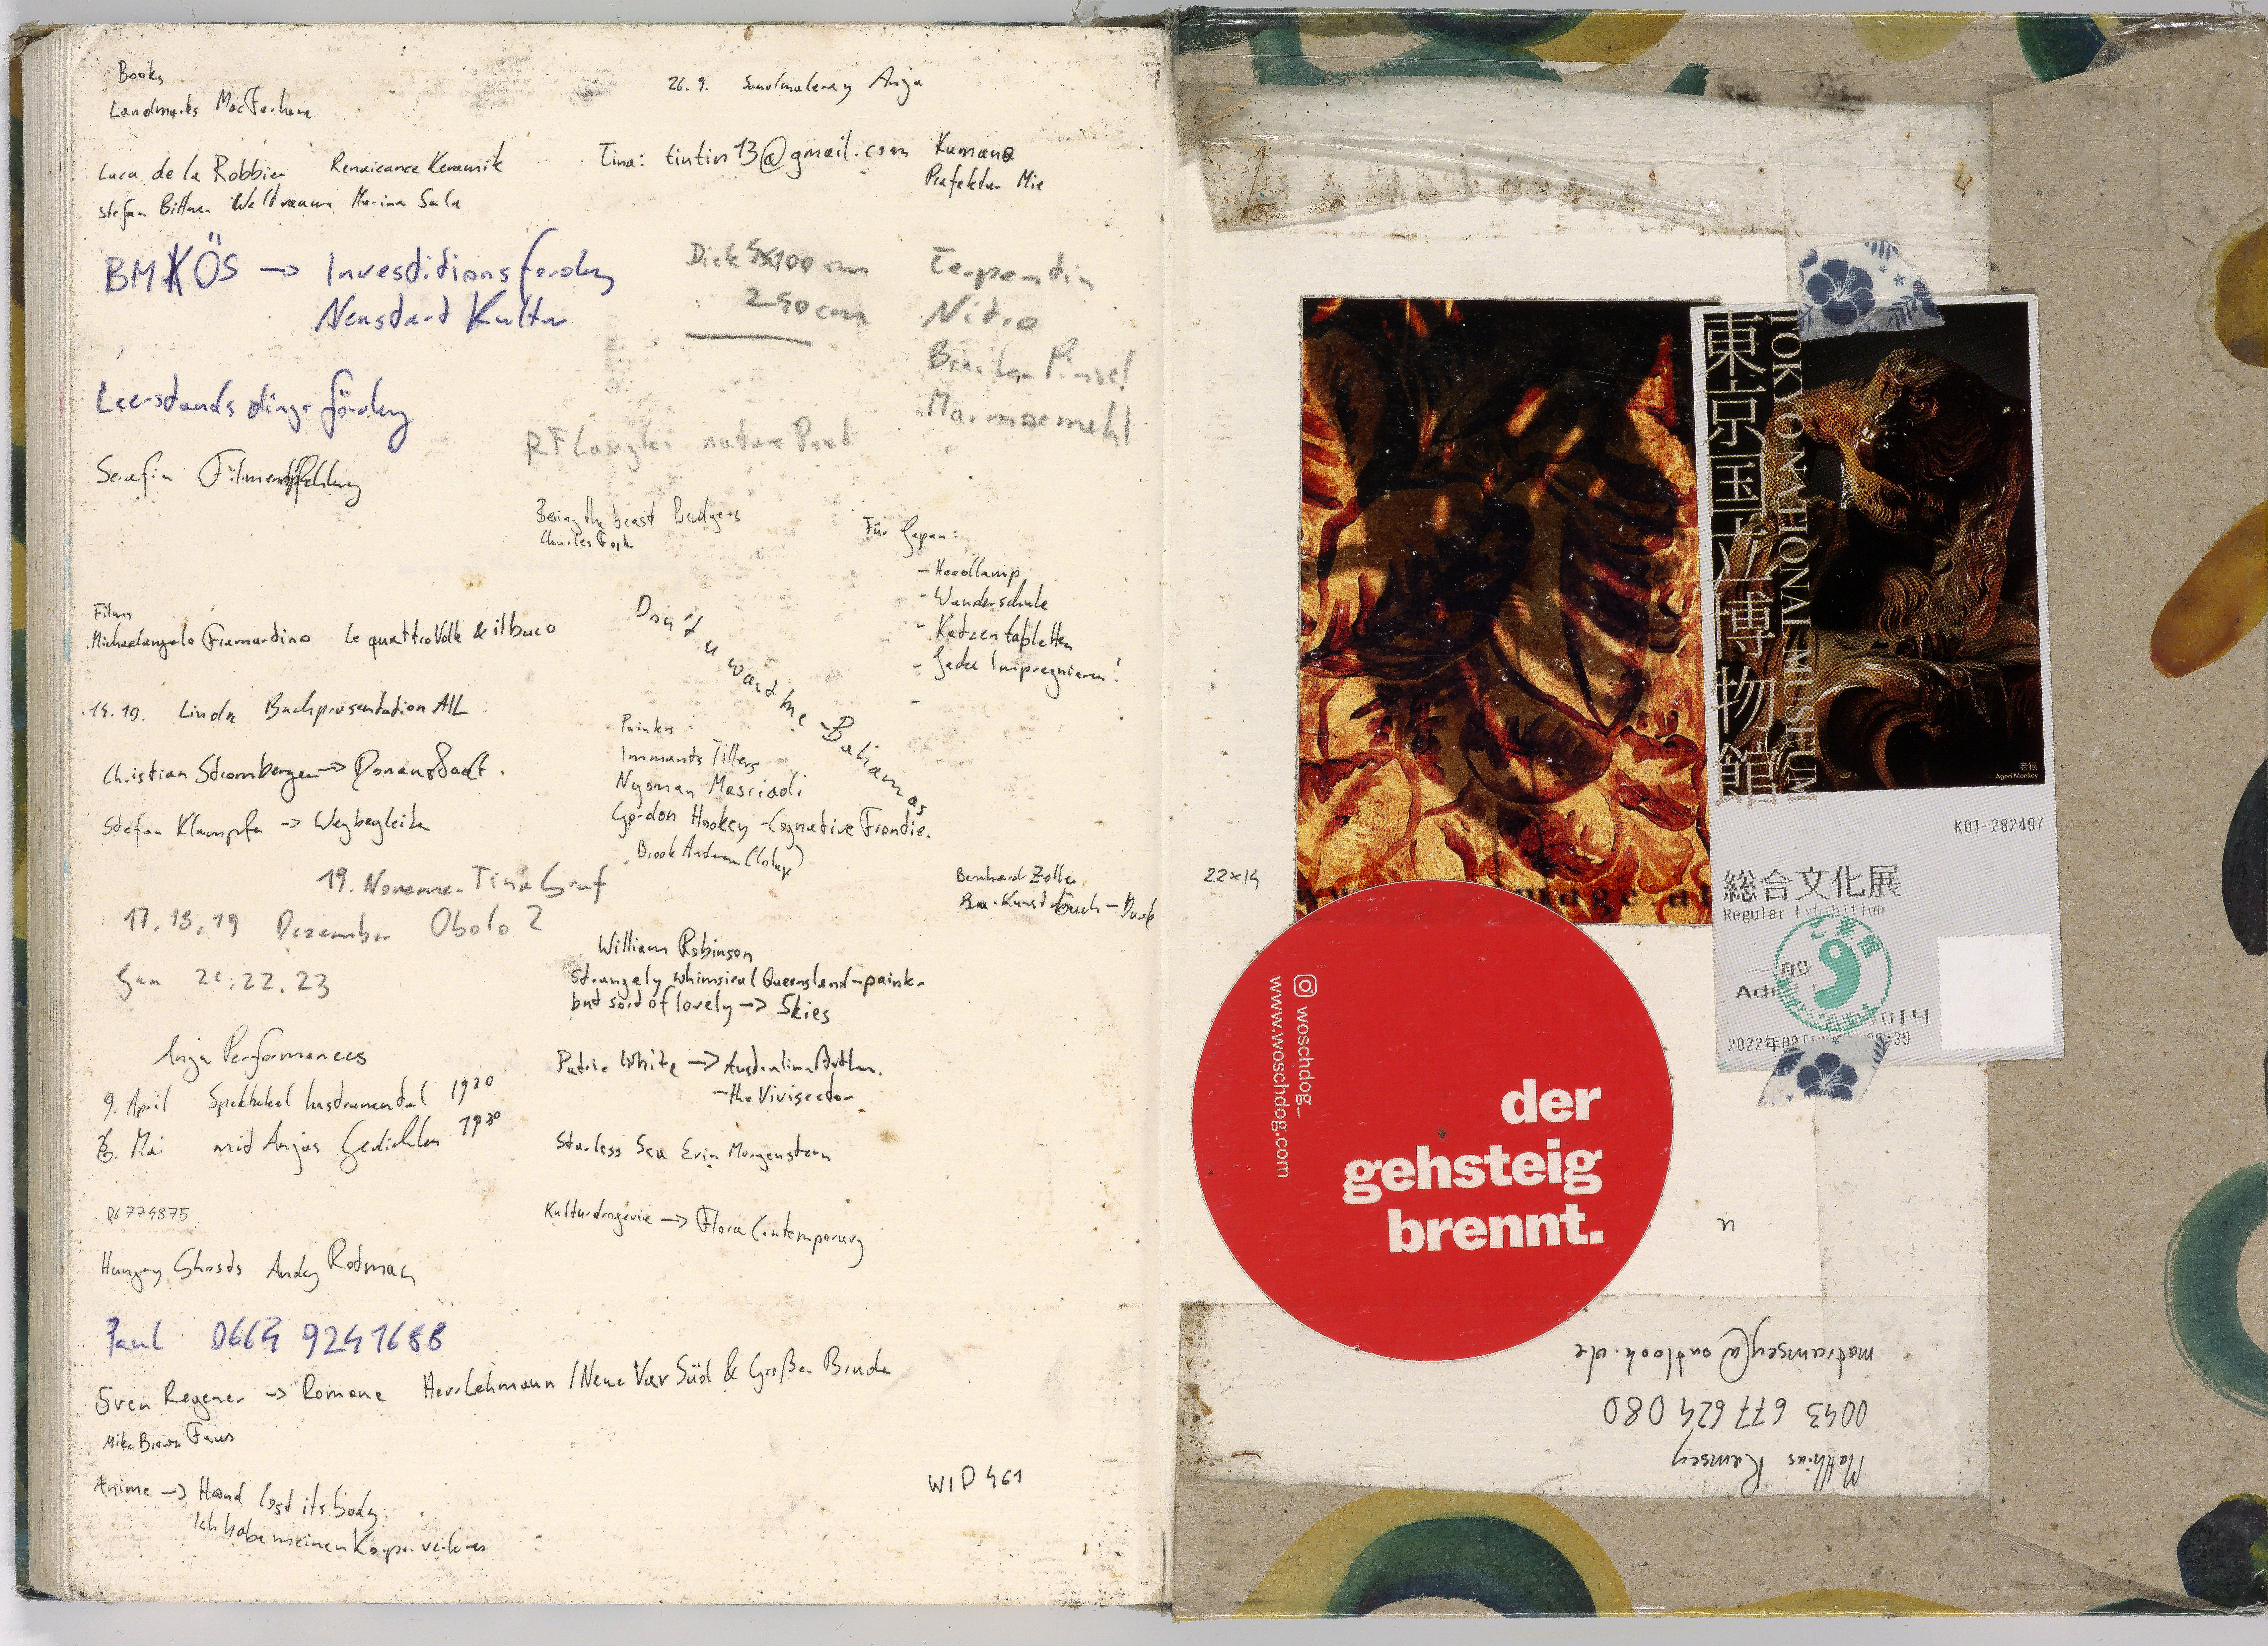 Books
Landmarks MacFarlane
26. 9. Anja
Luca de la Robbia Renaicance Keramik
Stefan Bittner Weltraum Marina Sala
Tina: tintin13@gmail.com
Kumano
Prefektur Mie
BMKÖS → Investitionsfördg
Neustart Kultur
Dick 5x100 cm
250 cm
Terpentin
Nitro
Breiten Pinsel
Marmormehl
Leerstands dings fördg
RF Langley nature Poet
Serafin Filmempfehlung
Being the beast Badgers
Charles Fosk
Für Japan:
- Headlamp
- Wanderschuhe
- Katzentabletten
- Jacke Impregnieren!
-
Films
Michaelangelo Framardino Le quattro Volte & il buco
Don't u want me - Bahamas
14.10. Linda Buchpräsentation AIL
Christian Stromberger → Donaustadt.
Stefan Klampfer → Wegbegleiter
Painters:
Immants Tillers
Nyoman Masriadi
Gordon Hookey - Cognative Frontier
Brook Andrew (Colage)
19. November Tina Graf
17, 18, 19 Dezember Obolo 2
Jan 21, 22, 23
Bernhard Zeller
Kunstbuch - Dach
William Robinson
strangely whimsical Queensland-painter
but sort of lovely → Skies
Anja Performances
9. April Spektakel Instrumental 19³⁰
6. Mai mit Anjas Gedichten 19³⁰
Patric White → Australian Author
- the Vivisector
Starless Sea Erin Morgenstern
Kulturdrogerie → Flora Contemporary
06774875
Hungry Ghosts Andy Rotman
Paul 0664 9241688
Sven Regener → Romane Herr Lehmann / Neue Var Süd & Großer Bruder
Mike Brown Faws
Anime → Hand lost its body
Ich habe meinen Körper verloren
WIP 461
22x14
東京国立博物館
TOKYO NATIONAL MUSEUM
老猿
Aged Monkey
K01-282497
総合文化展
Regular Exhibition
ご来館
2022年08
:39
woschdog_
www.woschdog.com
der
gehsteig
brennt.
n
Matthias Ramsey
0043 677 624 080
matramsey@outlook.de